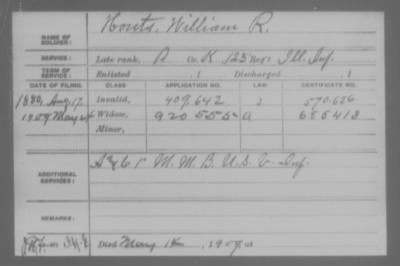 Honts, William R.
NAME OF SOLDIER:
SERVICE: Late rank, P Co. K 123 Reg't Ill. Inf.
TERM OF SERVICE: Enlisted , 1 Discharged , 1
DATE OF FILING. CLASS APPLICATION NO. LAW. CERTIFICATE NO.
1880, Aug 17. Invalid, 409.642 570.626
1909 May Widow, 920.555 a 685413
Minor,
ADDITIONAL SERVICES: M. M. B. U.S. V. Inf.
REMARKS:
Died May , 1909, at